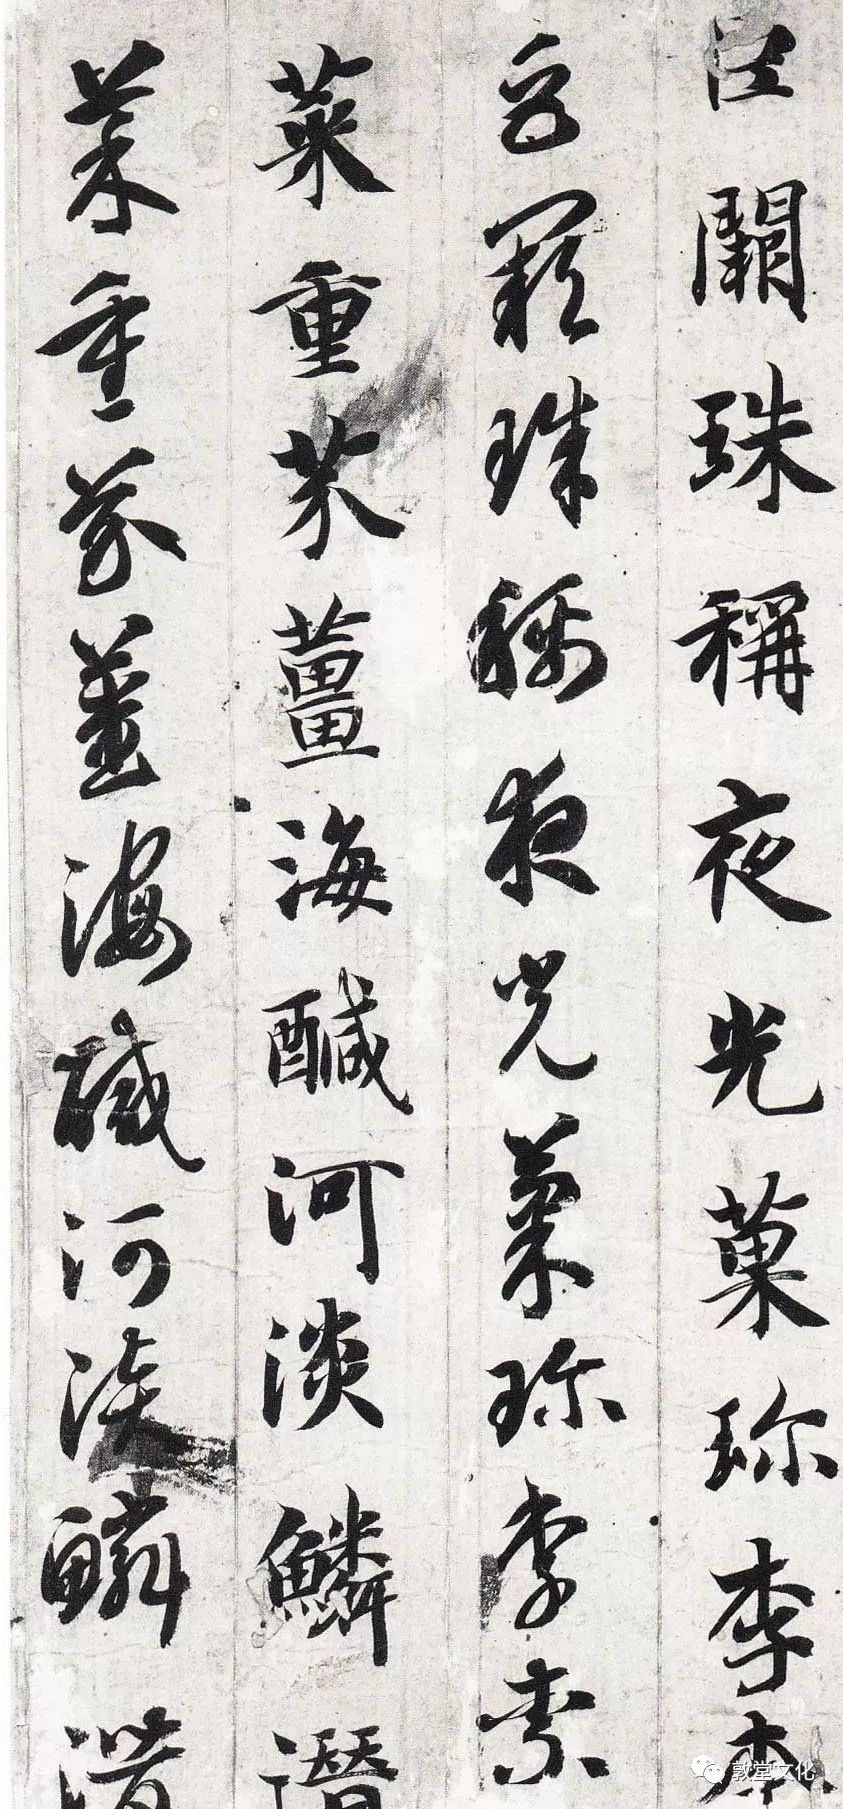 巨闕珠稱夜光菓珎李柰
巨闕珠稱夜光菓珎李柰
菜重芥薑海醎河淡鱗潛
菜重芥薑海醎河淡鱗潛
敦堂文化